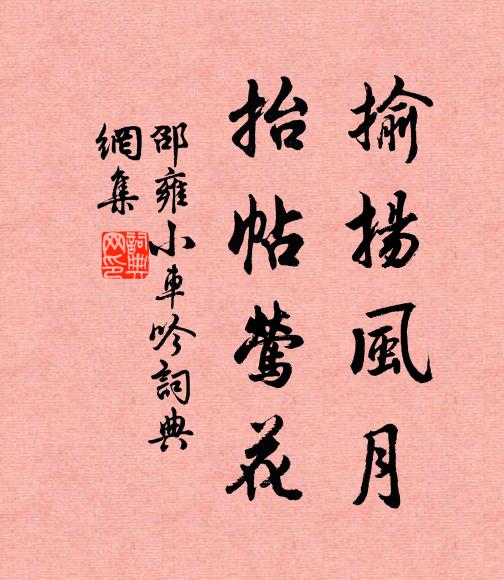 揄揚風月
抬帖鶯花
邵雍小車吟詞典
網集
詞典
网印